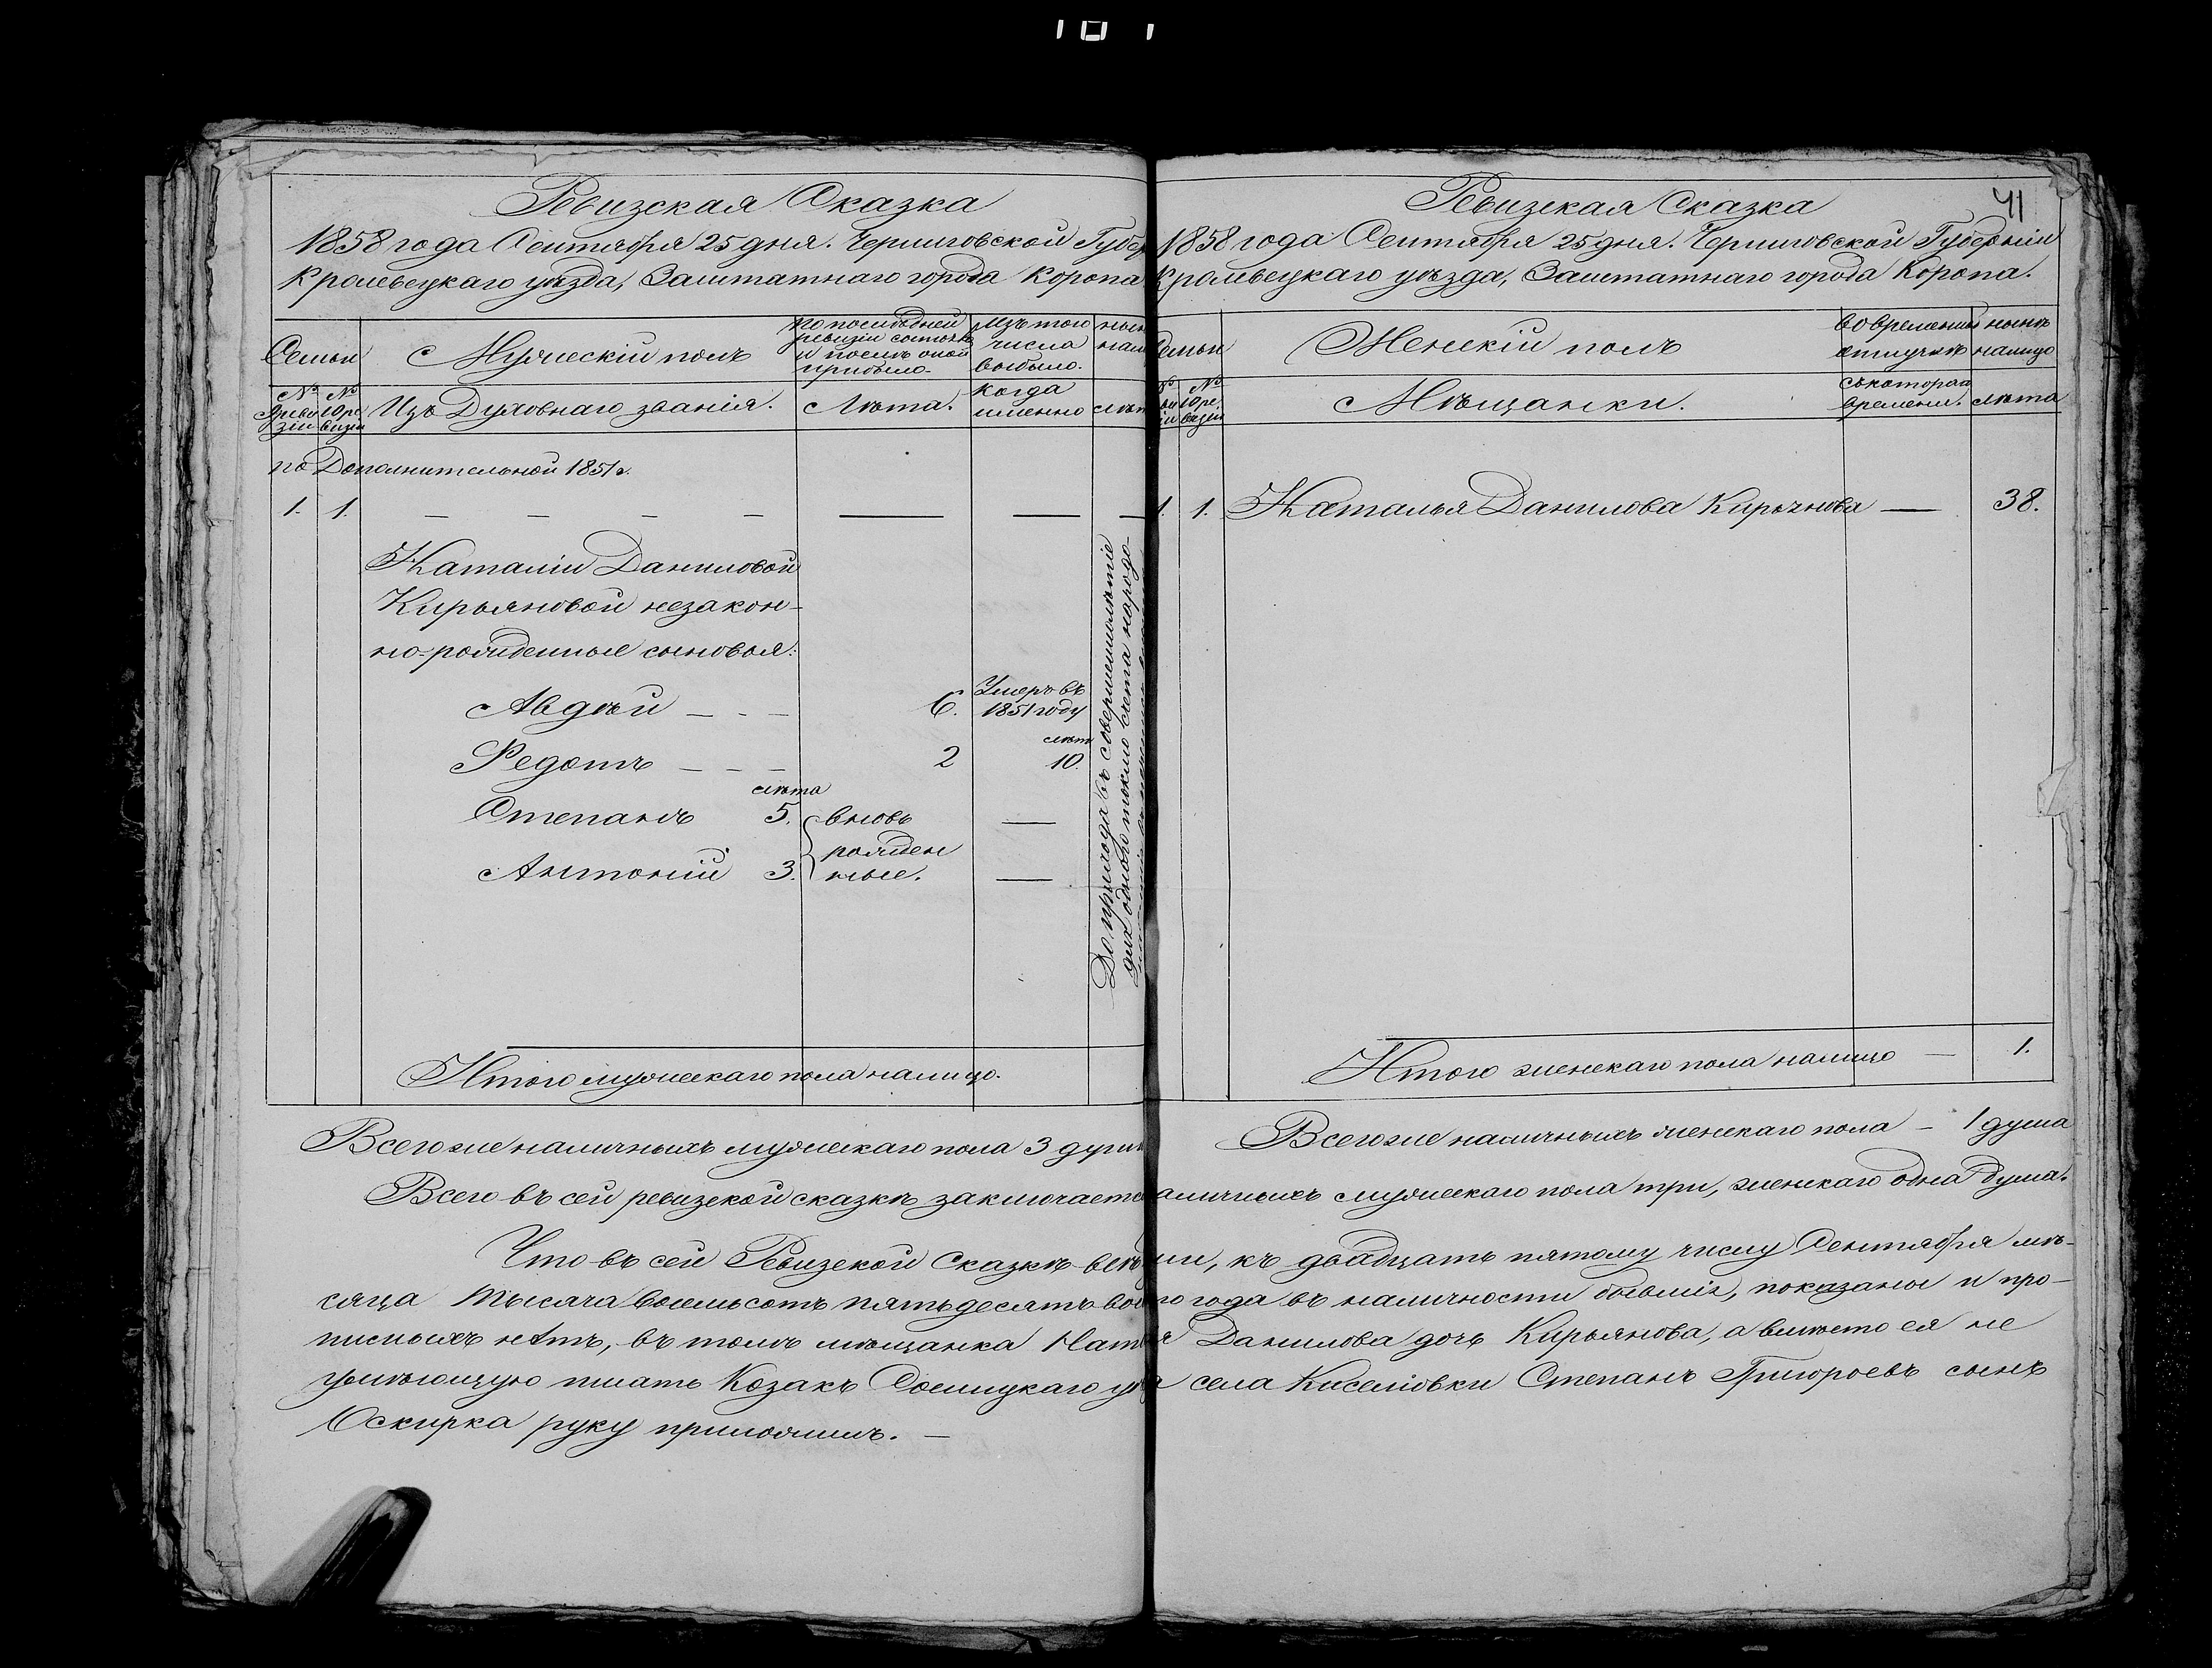 Ревизская Сказка
1858 года Сентября 25 дня. Черниговской Губер
Кролевецкаго уѣзда, Заштатнаго города Коропа
Семьи
Мужескій полъ
по последней ревизіи состояло и послѣ оной прибыло.
Изъ того числа выбыло.
№ ревизіи
№ 10 ревизіи
Изъ Духовнаго званія.
Лѣта.
когда именно
лѣт
по Дополнительной 1851 г.
1. 1. — — — — — — —
Наталіи Даниловой
Кирьяновой незакон-
но-рожденные сыновья:
Авдѣй — - — 6. Умеръ въ 1851 году
Федотъ — — — 2 лѣтъ 10.
Степанъ лѣта 5. вновь —
рожден
Антоній 3. ные. —
До прихода въ совершеннолѣтіе
для одного токмо счета народо-
Итого мужескаго пола налицо.
Всего же наличныхъ мужескаго пола 3 душ
41
Ревизская Сказка
1858 года Сентября 25 дня. Черниговской Губерніи
Кролевецкаго уѣзда, Заштатнаго города Коропа.
Семьи
Женскій полъ
во временной отлучкѣ
нынѣ налицо
№ 10 ревизіи
Мѣщанки.
съ котораго времени.
лѣта
1. 1. Наталья Данилова Кирьянова — 38.
Итого женскаго пола налицо — 1.
Всего же наличныхъ женскаго пола — 1 душа
Всего въ сей ревизской сказкѣ заключаетс аличныхъ мужескаго пола три, женскаго одна душа.
Что въ сей Ревизской Сказкѣ всѣ ши, къ двадцать пятому числу Сентября мѣ-
сяца тысяча восемьсотъ пятьдесятъ вос го года въ наличности бывшія, показаны и про-
писныхъ нѣтъ, въ томъ мѣщанка Нат я Данилова дочь Кирьянова, а вмѣсто ея не
умѣющую писать Козакъ Сосницкаго уѣ а села Киселіовки Степанъ Григороевъ сынъ
Оскирка руку приложилъ. —